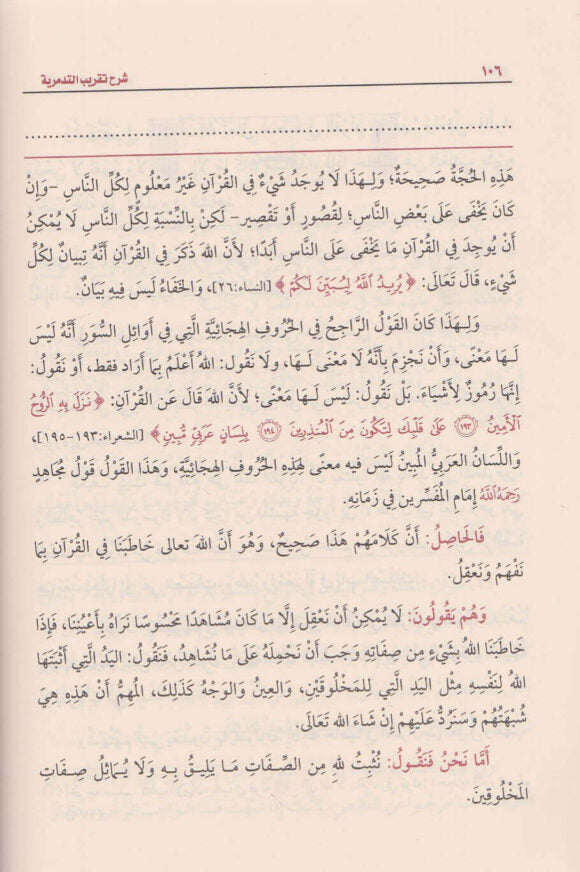 ١٠٦
شرح تقريب التدمرية
هَذِهِ الحُجَّةُ صَحِيحَةٌ؛ وَلِـهَذَا لَا يُوجَدُ شَيْءٌ فِي القُرْآنِ غَيْرُ مَعْلُومٍ لِكُلِّ النَّاسِ –وَإِنْ
كَانَ يَخْفَى عَلَى بَعْضِ النَّاسِ؛ لِقُصُورٍ أَوْ تَقْصِيرٍ– لَكِنْ بِالنِّسْبَةِ لِكُلِّ النَّاسِ لَا يُمْكِنُ
أَنْ يُوجِدَ فِي القُرْآنِ مَا يَخْفَى عَلَى النَّاسِ أَبَدًا؛ لأَنَّ اللهَ ذَكَرَ فِي القُرْآنِ أَنَّهُ تِبيانٌ لِكُلِّ
شَيْءٍ، قَالَ تَعَالَى: ﴿ يُرِيدُ اللَّهُ لِيُبَيِّنَ لَكُمْ ﴾ [النساء:٢٦]، وَالخَفَاءُ لَيسَ فِيهِ بَيَانٌ.
وَلِـهَذَا كَانَ القَوْلُ الرَّاجِحُ فِي الحُرُوفِ الهِجَائِيَّةِ الَّتِي فِي أَوَائِلِ السُّوَرِ أَنَّهُ لَيْسَ
لَـهَا مَعْنًى، وَأَنْ نَجْزِمَ بِأَنَّهُ لَا مَعْنَى لَـهَا، وَلَا نَقُول: اللهُ أَعْلَمُ بِمَا أَرَاد فقط، أَوْ نَقُولُ:
إِنَّهَا رُمُوزٌ لِأَشْيَاءَ. بَلْ نَقُولُ: لَيْسَ لَـهَا مَعْنًى؛ لأَنَّ اللهَ قَالَ عَن القُرْآنِ: ﴿ نَزَلَ بِهِ الرُّوحُ
الْأَمِينُ ﴿١٩٣﴾ عَلَى قَلْبِكَ لِتَكُونَ مِنَ الْمُنذِرِينَ ﴿١٩٤﴾ بِلِسَانٍ عَرَبِيٍّ مُّبِينٍ ﴾ [الشعراء:١٩٣-١٩٥]،
وَاللِّسَانُ العَرَبِيُّ المُبِينُ لَيْسَ فيه معنى لِهَذِهِ الحُرُوفِ الهِجَائِيَّةِ، وَهَذَا القَوْلُ قَوْلُ مُجَاهِدٍ
رَحِمَهُ اللَّهُ إِمَامِ المُفَسِّرِين فِي زَمَانِهِ.
فَالحَاصِلُ: أَنَّ كَلَامَهُمْ هَذَا صَحِيحٌ، وَهُوَ أَنَّ اللهَ تعالى خَاطَبَنَا فِي القُرْآنِ بِمَا
نَفهَمُ وَنَعْقِلُ.
وَهُمْ يَقُولُونَ: لَا يُمْكِنُ أَنْ نَعْقِلَ إِلَّا مَا كَانَ مُشَاهَدًا مَحْسُوسًا نَرَاهُ بِأَعْيُنِنَا، فَإِذَا
خَاطَبَنَا اللهُ بِشَيْءٍ مِن صِفَاتِهِ وَجَبَ أَنْ نَحْمِلَهُ عَلَى مَا نُشَاهِدُ، فَنَقُولُ: اليَدُ الَّتِي أَثْبَتَهَا
اللهُ لِنَفْسِهِ مِثْل اليَدِ الَّتِي لِلمَخْلُوقِيْنَ، وَالعِينُ وَالوَجْهُ كَذَلِكَ، المُهِمُّ أَنَّ هَذِهِ هِيَ
شُبْهَتُهُمْ وَسَنَرُدُّ عَلَيْهِمْ إِنْ شَاءَ الله تَعَالَى.
أَمَّا نَحْنُ فَنَقُولُ: نُثْبِتُ للهِ مِن الصِّفَاتِ مَا يَلِيقُ بِـهِ وَلَا يُـمَاثِلُ صِفَاتِ
المَخْلُوقِينَ.